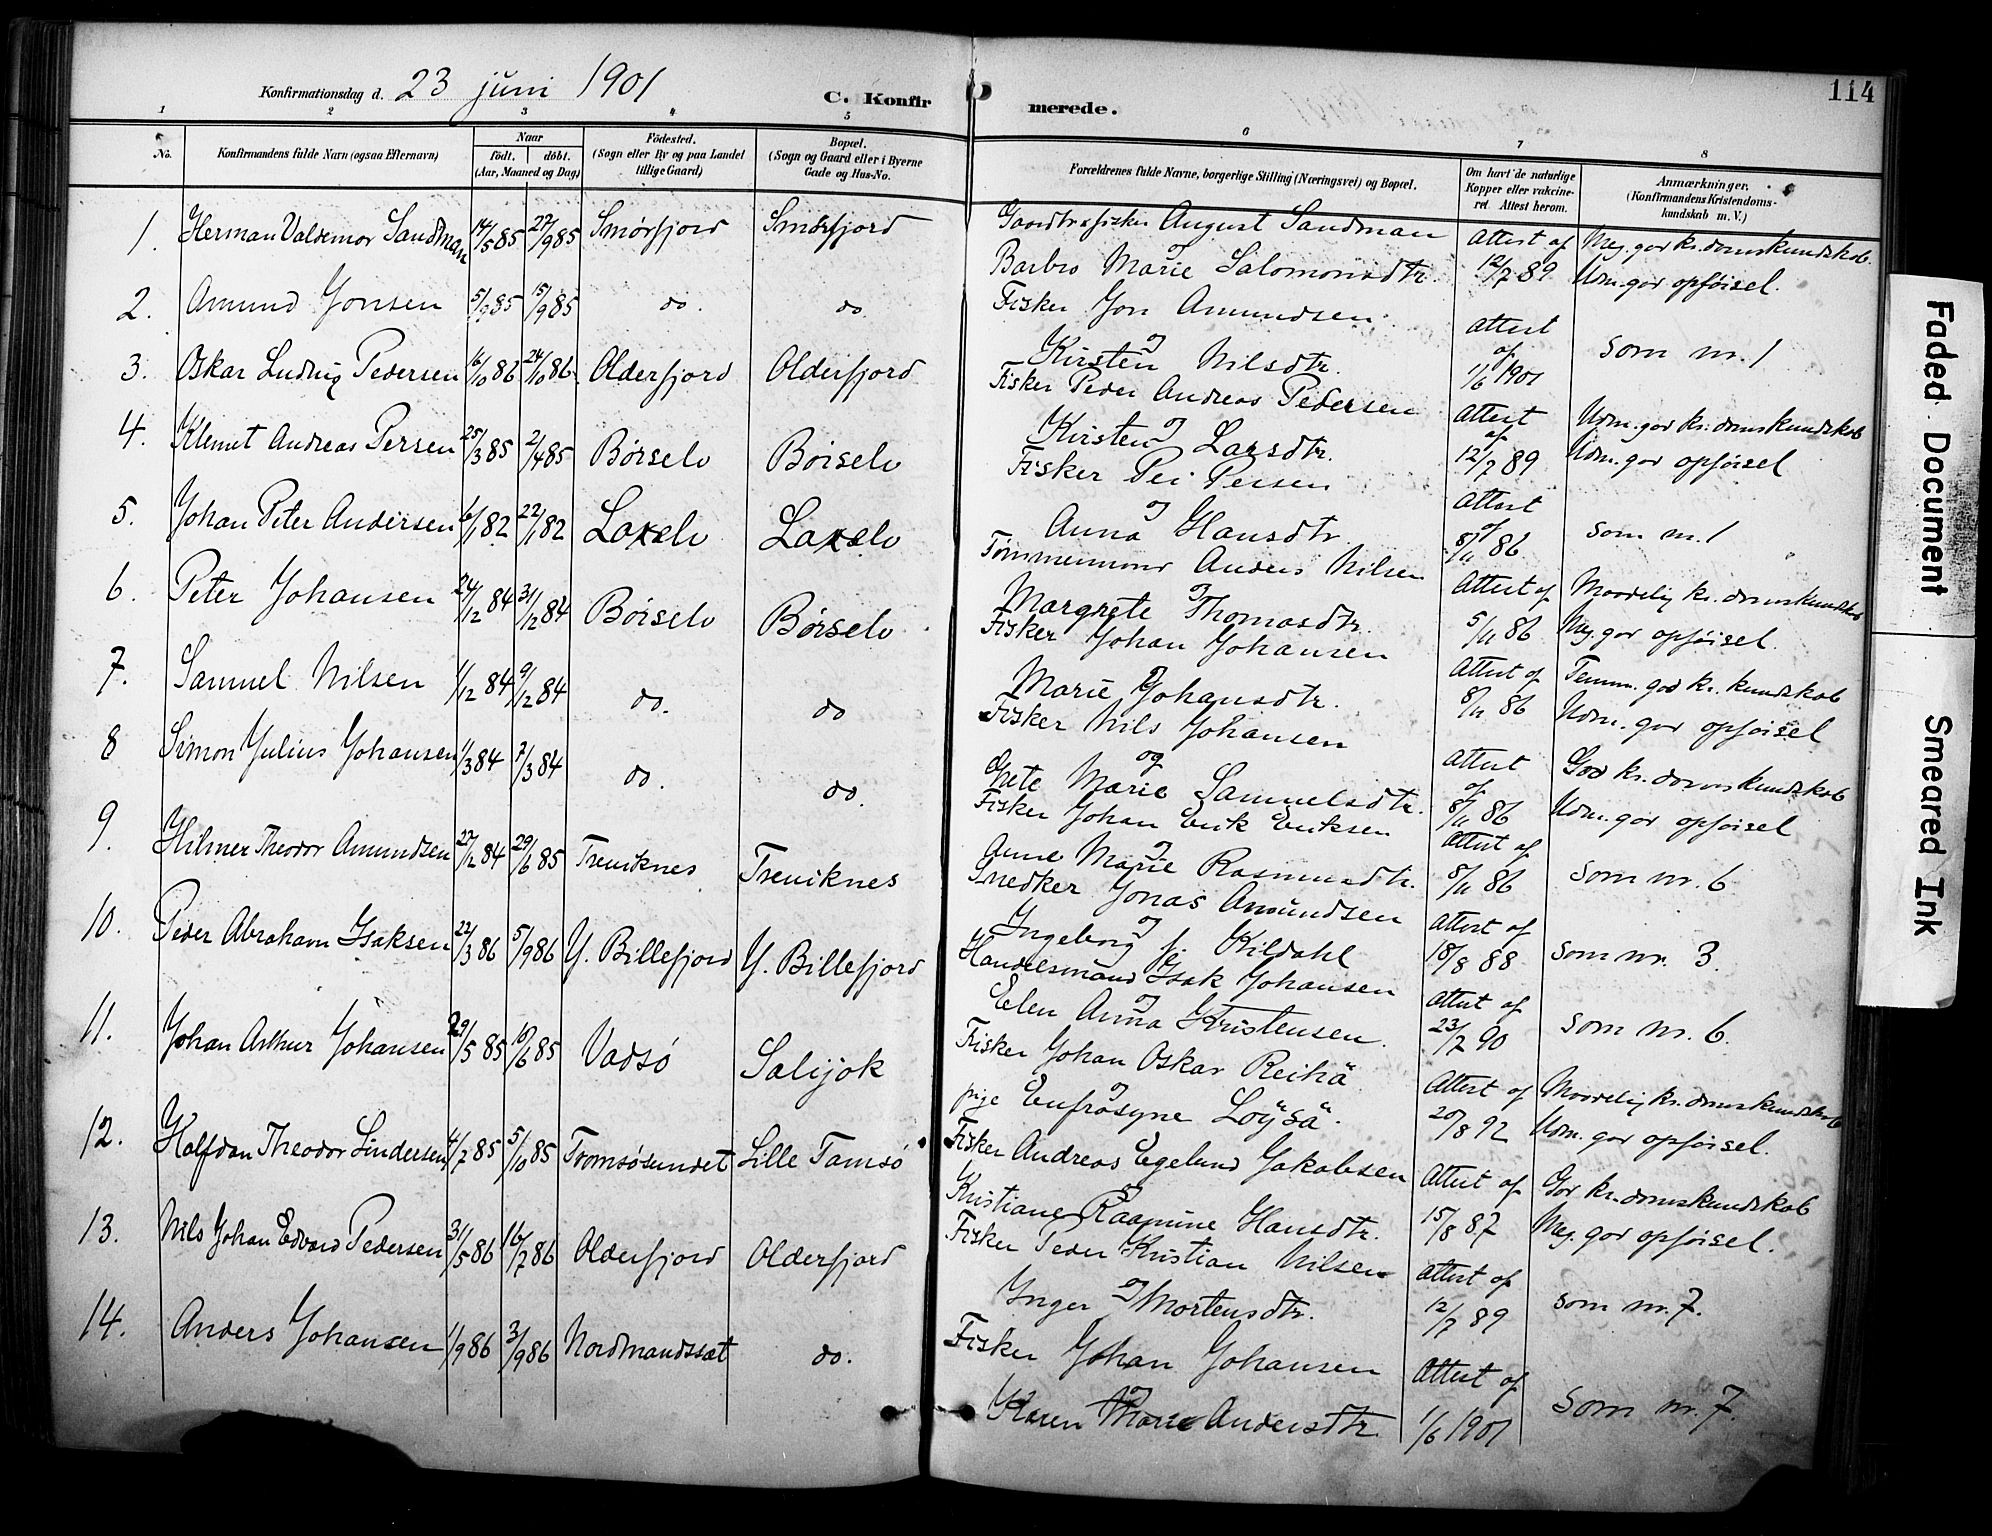 Konfirmationsdag d. 23 juni 1901
C. Konfirmerede.
114
1 2 3 4 5 6 7 8
No.
Konfirmandens fulde Navn (ogsaa Efternavn)
Naar
født. døbt.
(Aar, Maaned og Dag)
Fødested.
(Sogn eller By og paa Landet
tillige Gaard)
Bopæl.
(Sogn og Gaard eller i Byerne
Gade og Hus-No.
Forældrenes fulde Navne, borgerlige Stilling (Næringsvei) og Bopæl.
Om havt de naturlige
Kopper eller vakcine-
ret. Attest herom.
Anmærkninger.
(Konfirmandens Kristendoms-
kundskab m. V.)
1. Herman Valdemar Sandman 14/5 85 27/9 85 Smørfjord Smørfjord
Gaardbr & fisker August Sandman
og
Barbro Marie Salomonsdtr.
Attest af
12/7 89
Meg. god kr.domskundskab
Udm. god opførsel.
2. Amund Jonsen 5/9 85 15/9 85 do. do.
Fisker Jon Amundsen
og
Kirsten Nilsdtr.
Attest
af
1/6 1901
som nr. 1
3. Oskar Ludvig Pedersen 16/10 86 24/10 86 Olderfjord Olderfjord
Fisker Peder Andreas Pedersen
og
Kirsten Larsdtr.
Attest
af
12/7 89
Udm. god kr.domskundskab
Udm. god opførsel
4. Klemet Andreas Persen 25/3 85 2/4 85 Børselv Børselv
Fisker Pei Persen
og
Anna Hansdtr.
Attest
af
8/11 86
som nr. 1
5. Johan Peter Andersen 6/1 82 22/1 82 Laxelv Laxelv
Tømmermand Anders Nilsen
og
Margrete Thomasdtr.
Attest af
5/11 86
Maadelig kr.domskundskab
Meg. god opførsel.
6. Peter Johansen 24/12 84 31/12 84 Børselv Børselv
Fisker Johan Johansen
og
Marie Johansdtr.
Attest af
8/11 86
Temm. god kr. kundskab
Udm. god opførsel
7. Samuel Nilsen 1/12 84 9/12 84 do. do
Fisker Nils Johansen
og
Grete Marie Samuelsdtr.
Attest
af
8/11 86
God kr.domskundskab
Udm. god opførsel
8 Simon Julius Johansen 1/3 84 7/3 84 do. do.
Fisker Johan Erik Eriksen
og
Anne Marie Rasmusdtr.
Attest af
8/11 86
som nr. 6
9. Hilmer Theodor Amundsen 22/12 84 29/6 85 Treviknes Treviknes
Snedker Jonas Amundsen
og
Ingeborg f. Kildahl
Attest af
18/8 88
som nr. 3.
10. Peder Abraham Isaksen 22/3 86 5/9 86 Y. Billefjord Y. Billefjord
Handelsmand Isak Johansen
og
Elen Anna Kristensen.
Attest af
23/7 90
som nr. 6.
11. Johan Arthur Johansen 29/5 85 10/6 85 Vadsø Salijok
Fisker Johan Oskar Reihä
og
pige Eufrosyne Loÿsä.
Attest af
20/8 92
Maadelig kr.domskundskab
Udm. god opførsel.
12. Halfdan Theodor Lindersen 4/7 85 5/10 85 Tromsøsundet Lille Tamsø
Fisker Andreas Egelund Jakobsen
og
Kristiane Hansdtr.
Attest af
15/8 87
God kr.domskundskab
Meg. god opførsel.
13. Nils Johan Edvard Pedersen 31/5 86 16/7 86 Olderfjord Olderfjord
Fisker Peder Kristian Nilsen
og
Inger Mortensdtr.
Attest af
12/7 89
som nr. 7.
14. Anders Johansen 1/9 86 3/9 86 Nordmandsset do.
Fisker Johan Johansen
og
Karen Marie Andersdtr.
Attest af
1/6 1901
som nr. 7.
Faded Document
Smeared Ink